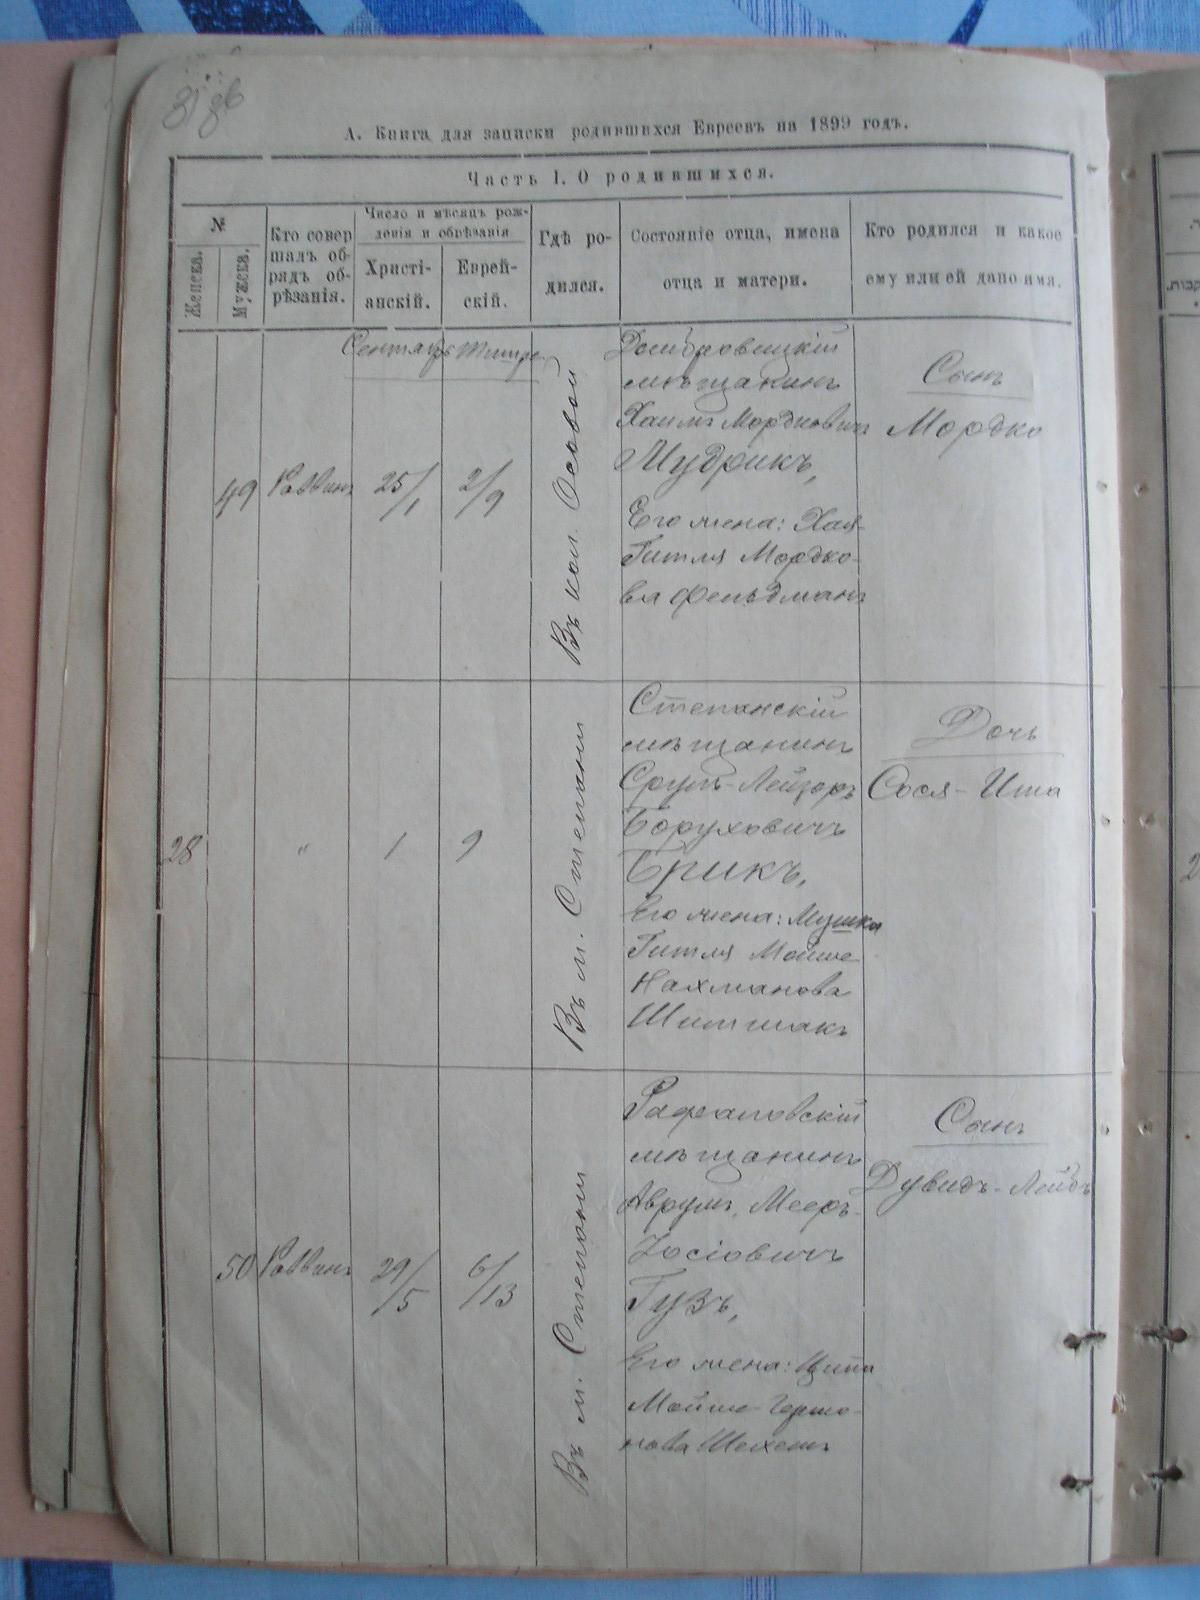 А. Книга для записки родившихся Евреевъ на 1899 годъ.
Часть I. О родившихся.
№
Женска.
Мужска.
Кто совер
шалъ об-
рядъ об-
рѣзанія.
Число и мѣсяцъ рож-
денія и обрѣзанія
Христі-
анскій.
Еврей-
скій.
Гдѣ ро-
дился.
Состояніе отца, имена
отца и матери.
Кто родился и какое
ему или ей дано имя.
Сентябрь Тишре
49
Раввинъ
25/1
2/9
Въ кол. Осовой
Домбровицкій
мѣщанинъ
Хаимъ Мордковичъ
Мудрикъ,
Его жена: Хая-
Гитля Мордко-
ва Фельдманъ
Сынъ
Мордко
28
"
1
9
Въ м. Степани
Степанскій
мѣщанинъ
Сруль-Лейзоръ
Боруховичъ
Брикъ,
Его жена: Мушка
Гитля Мойше
Нахманова
Шитмакъ
Дочь
Сося-Ита
50
Раввинъ
29/5
6/13
Въ м. Степани
Рафаловскій
мѣщанинъ
Аврумъ, Мееръ-
Іосіовичъ
Гузъ,
Его жена: Ципа
Мойше-Гершо-
нова
Сынъ
Дувидъ-Лейбъ